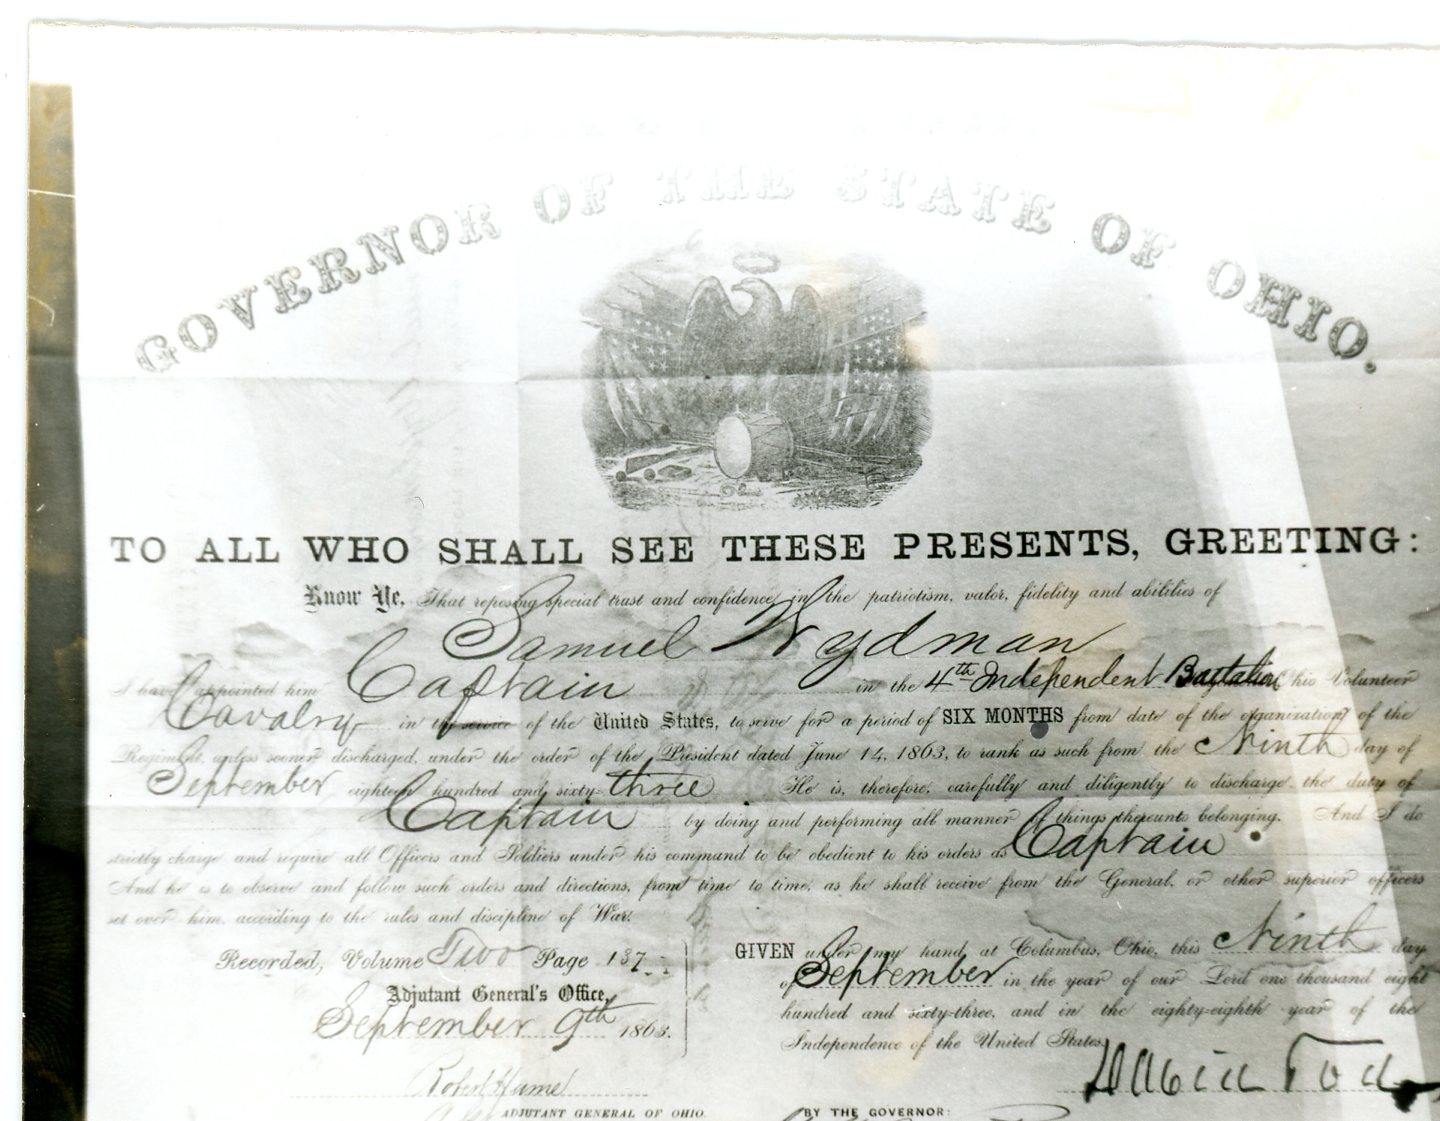 GOVERNOR OF THE STATE OF OHIO.
TO ALL WHO SHALL SEE THESE PRESENTS, GREETING:
Know Ye, That reposing special trust and confidence in the patriotism, valor, fidelity and abilities of
Samuel Wydman
I have appointed him Captain in the 4th Independent Battalion Ohio Volunteer
Cavalry in the service of the United States, to serve for a period of SIX MONTHS from date of the organization of the
Regiment, unless sooner discharged, under the order of the President dated June 14, 1863, to rank as such from the Ninth day of
September eighteen hundred and sixty-three He is, therefore, carefully and diligently to discharge the duty of
Captain by doing and performing all manner of things thereunto belonging. And I do
strictly charge and require all Officers and Soldiers under his command to be obedient to his orders as Captain
And he is to observe and follow such orders and directions, from time to time, as he shall receive from the General, or other superior officers
set over him, according to the rules and discipline of War.
Recorded, Volume Two Page 137
Adjutant General's Office,
September 9th 1863.
Robert Hume
ADJUTANT GENERAL OF OHIO.
GIVEN under my hand, at Columbus, Ohio, this Ninth day
of September in the year of our Lord one thousand eight
hundred and sixty-three, and in the eighty-eighth year of the
Independence of the United States.
David Tod
BY THE GOVERNOR: